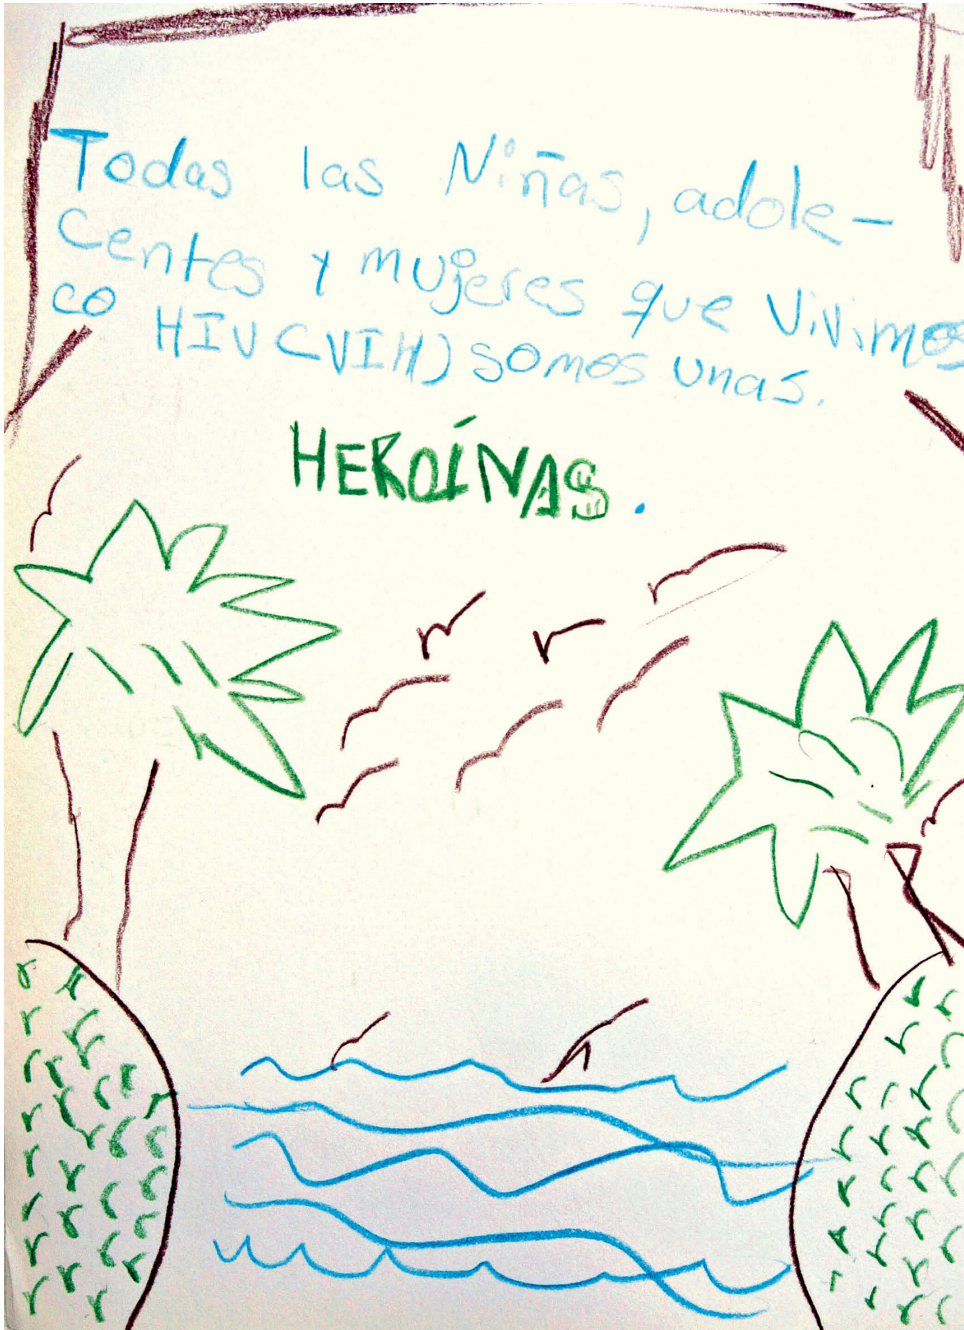 Todas las Niñas, adole-
centes y mujeres que Vivimos
co HIV (VIH) somos unas.
HEROÍNAS.